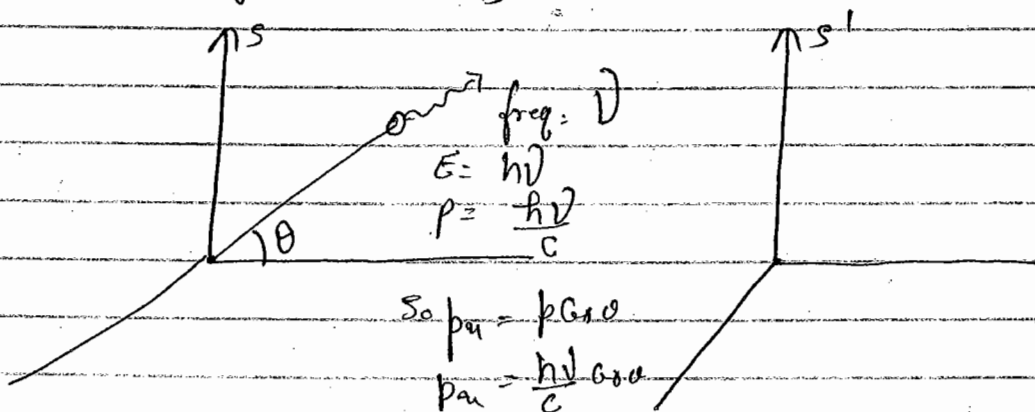 S
S'
freq. ν
E = hν
p = hν/c
θ
So pₓ = p Cosθ
pₓ = hν/c Cosθ